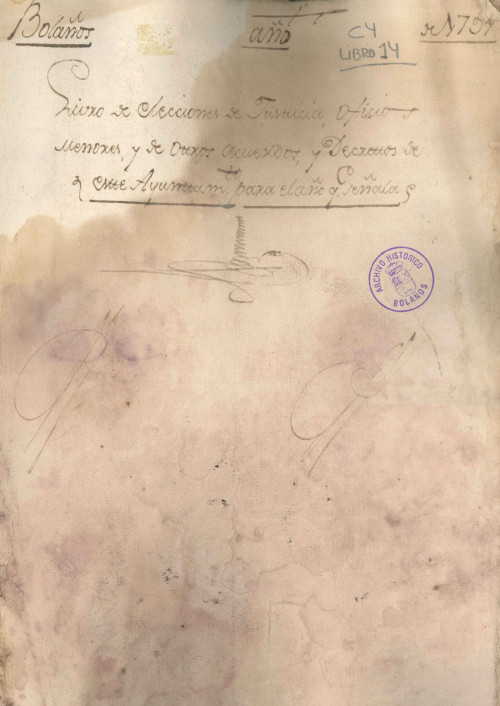 Bolaños año de 1797
C4
LIBRO 14
Livro de elecciones de Justicia, oficios
menores, y de otros acuerdos, y Decretos de
este Ayuntamto. para el año q. señala
ARCHIVO HISTORICO
BOLAÑOS